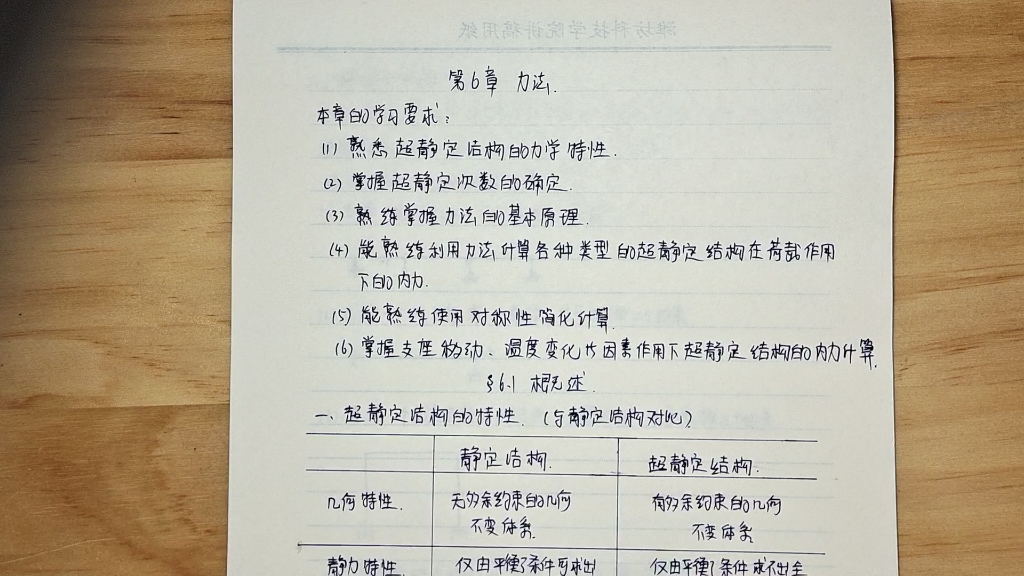 潍坊科技学院讲稿用纸
第6章 力法.
本章的学习要求:
(1) 熟悉超静定结构的力学特性.
(2) 掌握超静定次数的确定.
(3) 熟练掌握力法的基本原理.
(4) 能熟练利用力法计算各种类型的超静定结构在荷载作用
下的内力.
(5) 能熟练使用对称性简化计算.
(6) 掌握支座移动、温度变化等因素作用下超静定结构的内力计算.
§6.1 概述.
一、超静定结构的特性.(与静定结构对比)
静定结构. 超静定结构.
几何特性. 无多余约束的几何 有多余约束的几何
不变体系. 不变体系
静力特性. 仅由平衡条件可求出 仅由平衡条件求不出全